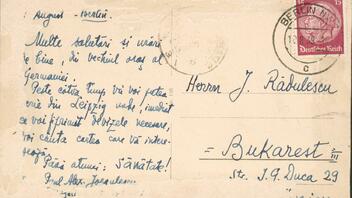 August - Berlin
Multe salutări și urări
de bine, din vechiul oraș al
Germaniei.
Peste câtva timp, vă voi
din Leipzig unde, imediat
ce voi primi devizele necesare,
voi căuta cartea care vă intere-
sează.
Până atunci: Sănătate!
Alex.
BERLIN
15
Deutsches Reich
c
Herrn J. Rădulescu
Bukarest III
Str. I. G. Duca 29